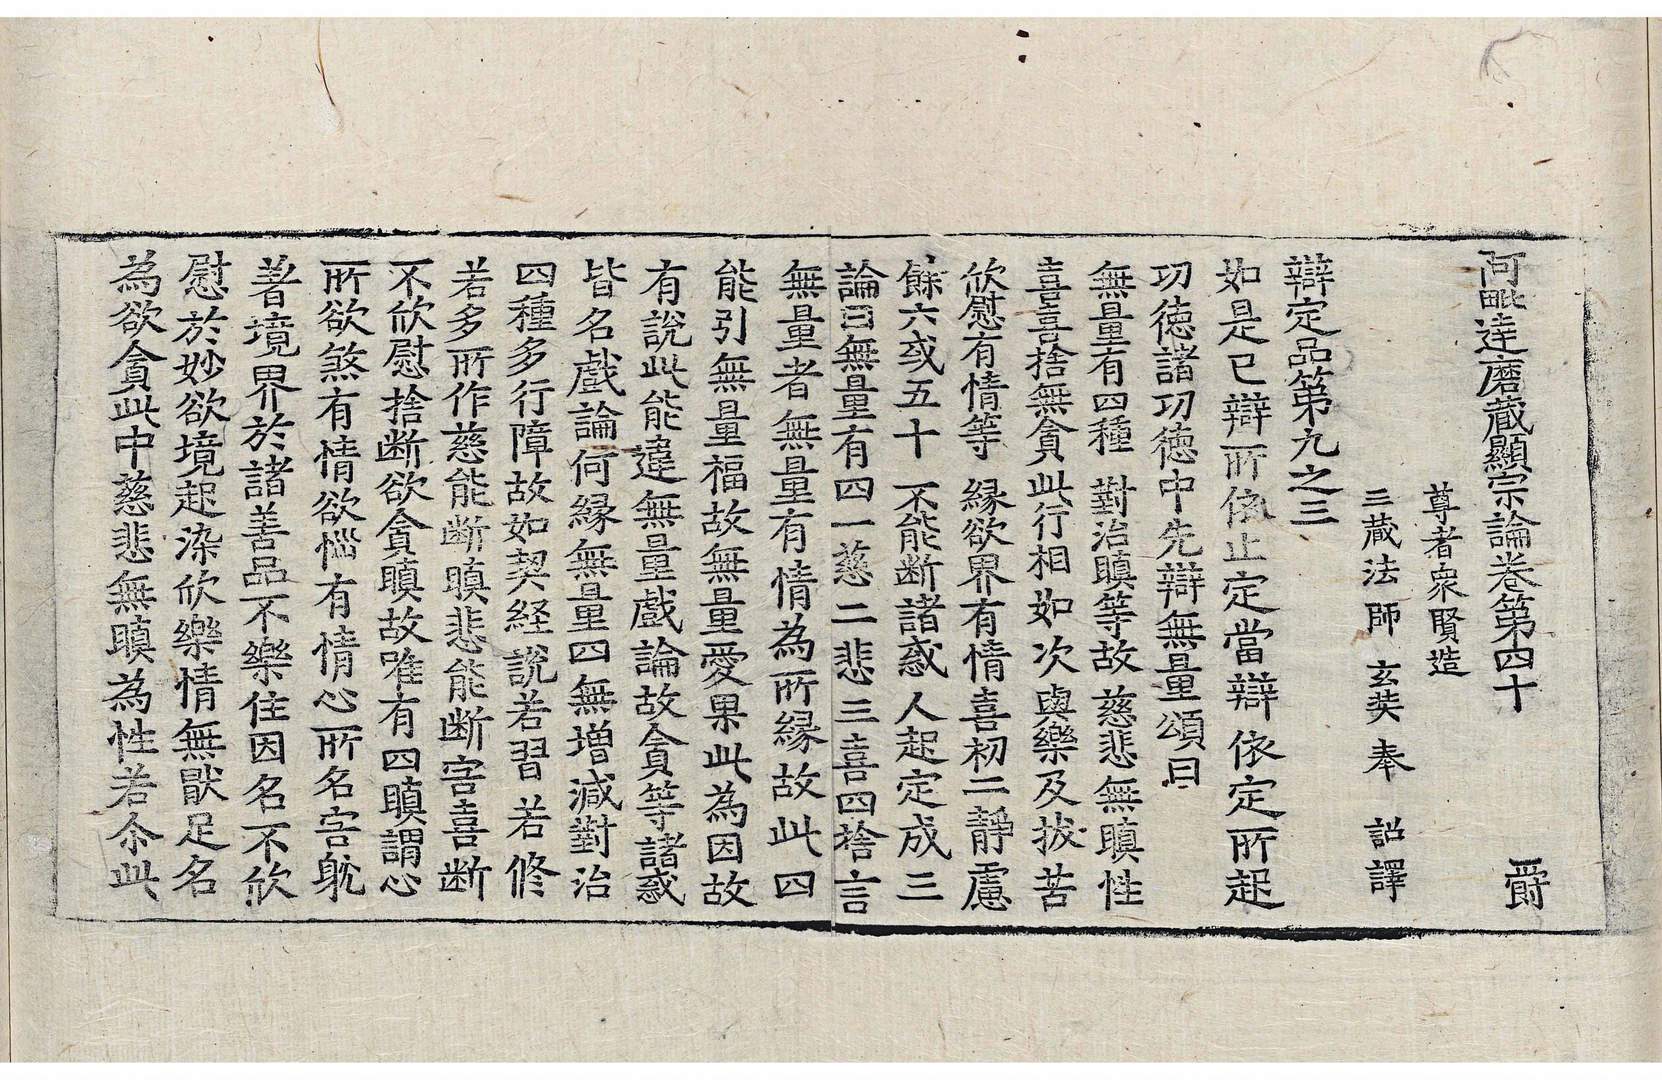 阿毗達磨藏顯宗論卷第四十　爵
尊者衆賢造
三藏法師　玄奘　奉　詔譯
辯定品第九之三
如是已辯所依止定當辯依定所起
功徳諸功徳中先辯無量頌曰
無量有四種　對治瞋等故　慈悲無瞋性
喜喜捨無貪　此行相如次　與樂及拔苦
欣慰有情等　縁欲界有情　喜初二靜慮
餘六或五十　不能断諸惑　人起定成三
論曰無量有四一慈二悲三喜四捨言
無量者無量有情為所縁故此四
能引無量福故無量愛果此為因故
有說此能違無量戲論故貪等諸惑
皆名戲論何縁無量四無增減對治
四種多行障故如契経說若習若修
若多所作慈能断瞋悲能断害喜断
不欣慰捨断欲貪瞋故唯有四瞋謂心
所欲煞有情欲惱有情心所名害躭
著境界於諸善品不樂住因名不欣
慰於妙欲境起染欣樂情無猒足名
為欲貪此中慈悲無瞋為性若尒此